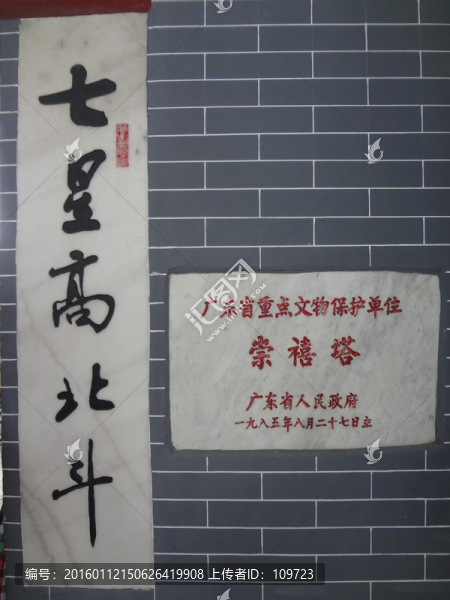 七星高北斗
广东省重点文物保护单位
崇禧塔
广东省人民政府
一九八五年八月二十七日立
编号：20160112150626419908 上传者ID：109723